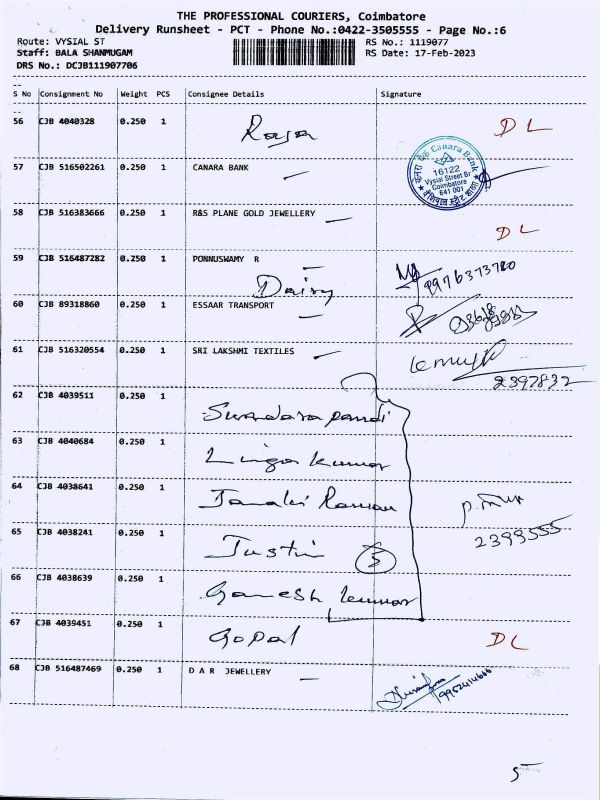 THE PROFESSIONAL COURIERS, Coimbatore
Delivery Runsheet - PCT - Phone No.:0422-3505555 - Page No.:6
Route: VYSIAL ST RS No.: 1119077
Staff: BALA SHANMUGAM RS Date: 17-Feb-2023
DRS No.: DCJB111907706
S No Consignment No Weight PCS Consignee Details Signature
56 CJB 4040328 0.250 1 Raja DL
57 CJB 516502261 0.250 1 CANARA BANK
Canara Bank
16122
Vysial Street Br
Coimbatore
641 001
58 CJB 516383666 0.250 1 R&S PLANE GOLD JEWELLERY DL
59 CJB 516487282 0.250 1 PONNUSWAMY R 9976373780
Daisy
60 CJB 89318860 0.250 1 ESSAAR TRANSPORT
61 CJB 516320554 0.250 1 SRI LAKSHMI TEXTILES
2397832
62 CJB 4039511 0.250 1 Sundara pandi
63 CJB 4040684 0.250 1 Linga kumar
64 CJB 4038641 0.250 1 Janaki Raman
65 CJB 4038241 0.250 1 Justin 5 2399555
66 CJB 4038639 0.250 1 Ganesh kumar
67 CJB 4039451 0.250 1 Gopal DL
68 CJB 516487469 0.250 1 D A R JEWELLERY
5